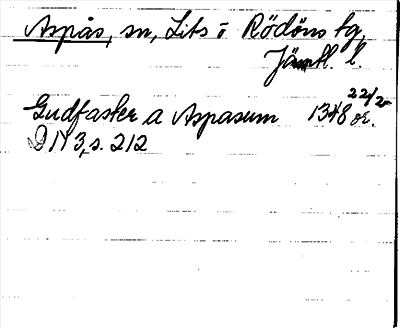 Aspås, sn, Lits o Rödöns tg,
Jämtl. l.
22/2
Gudfaster a Aspasum 1348 or.
DN 3, s. 212